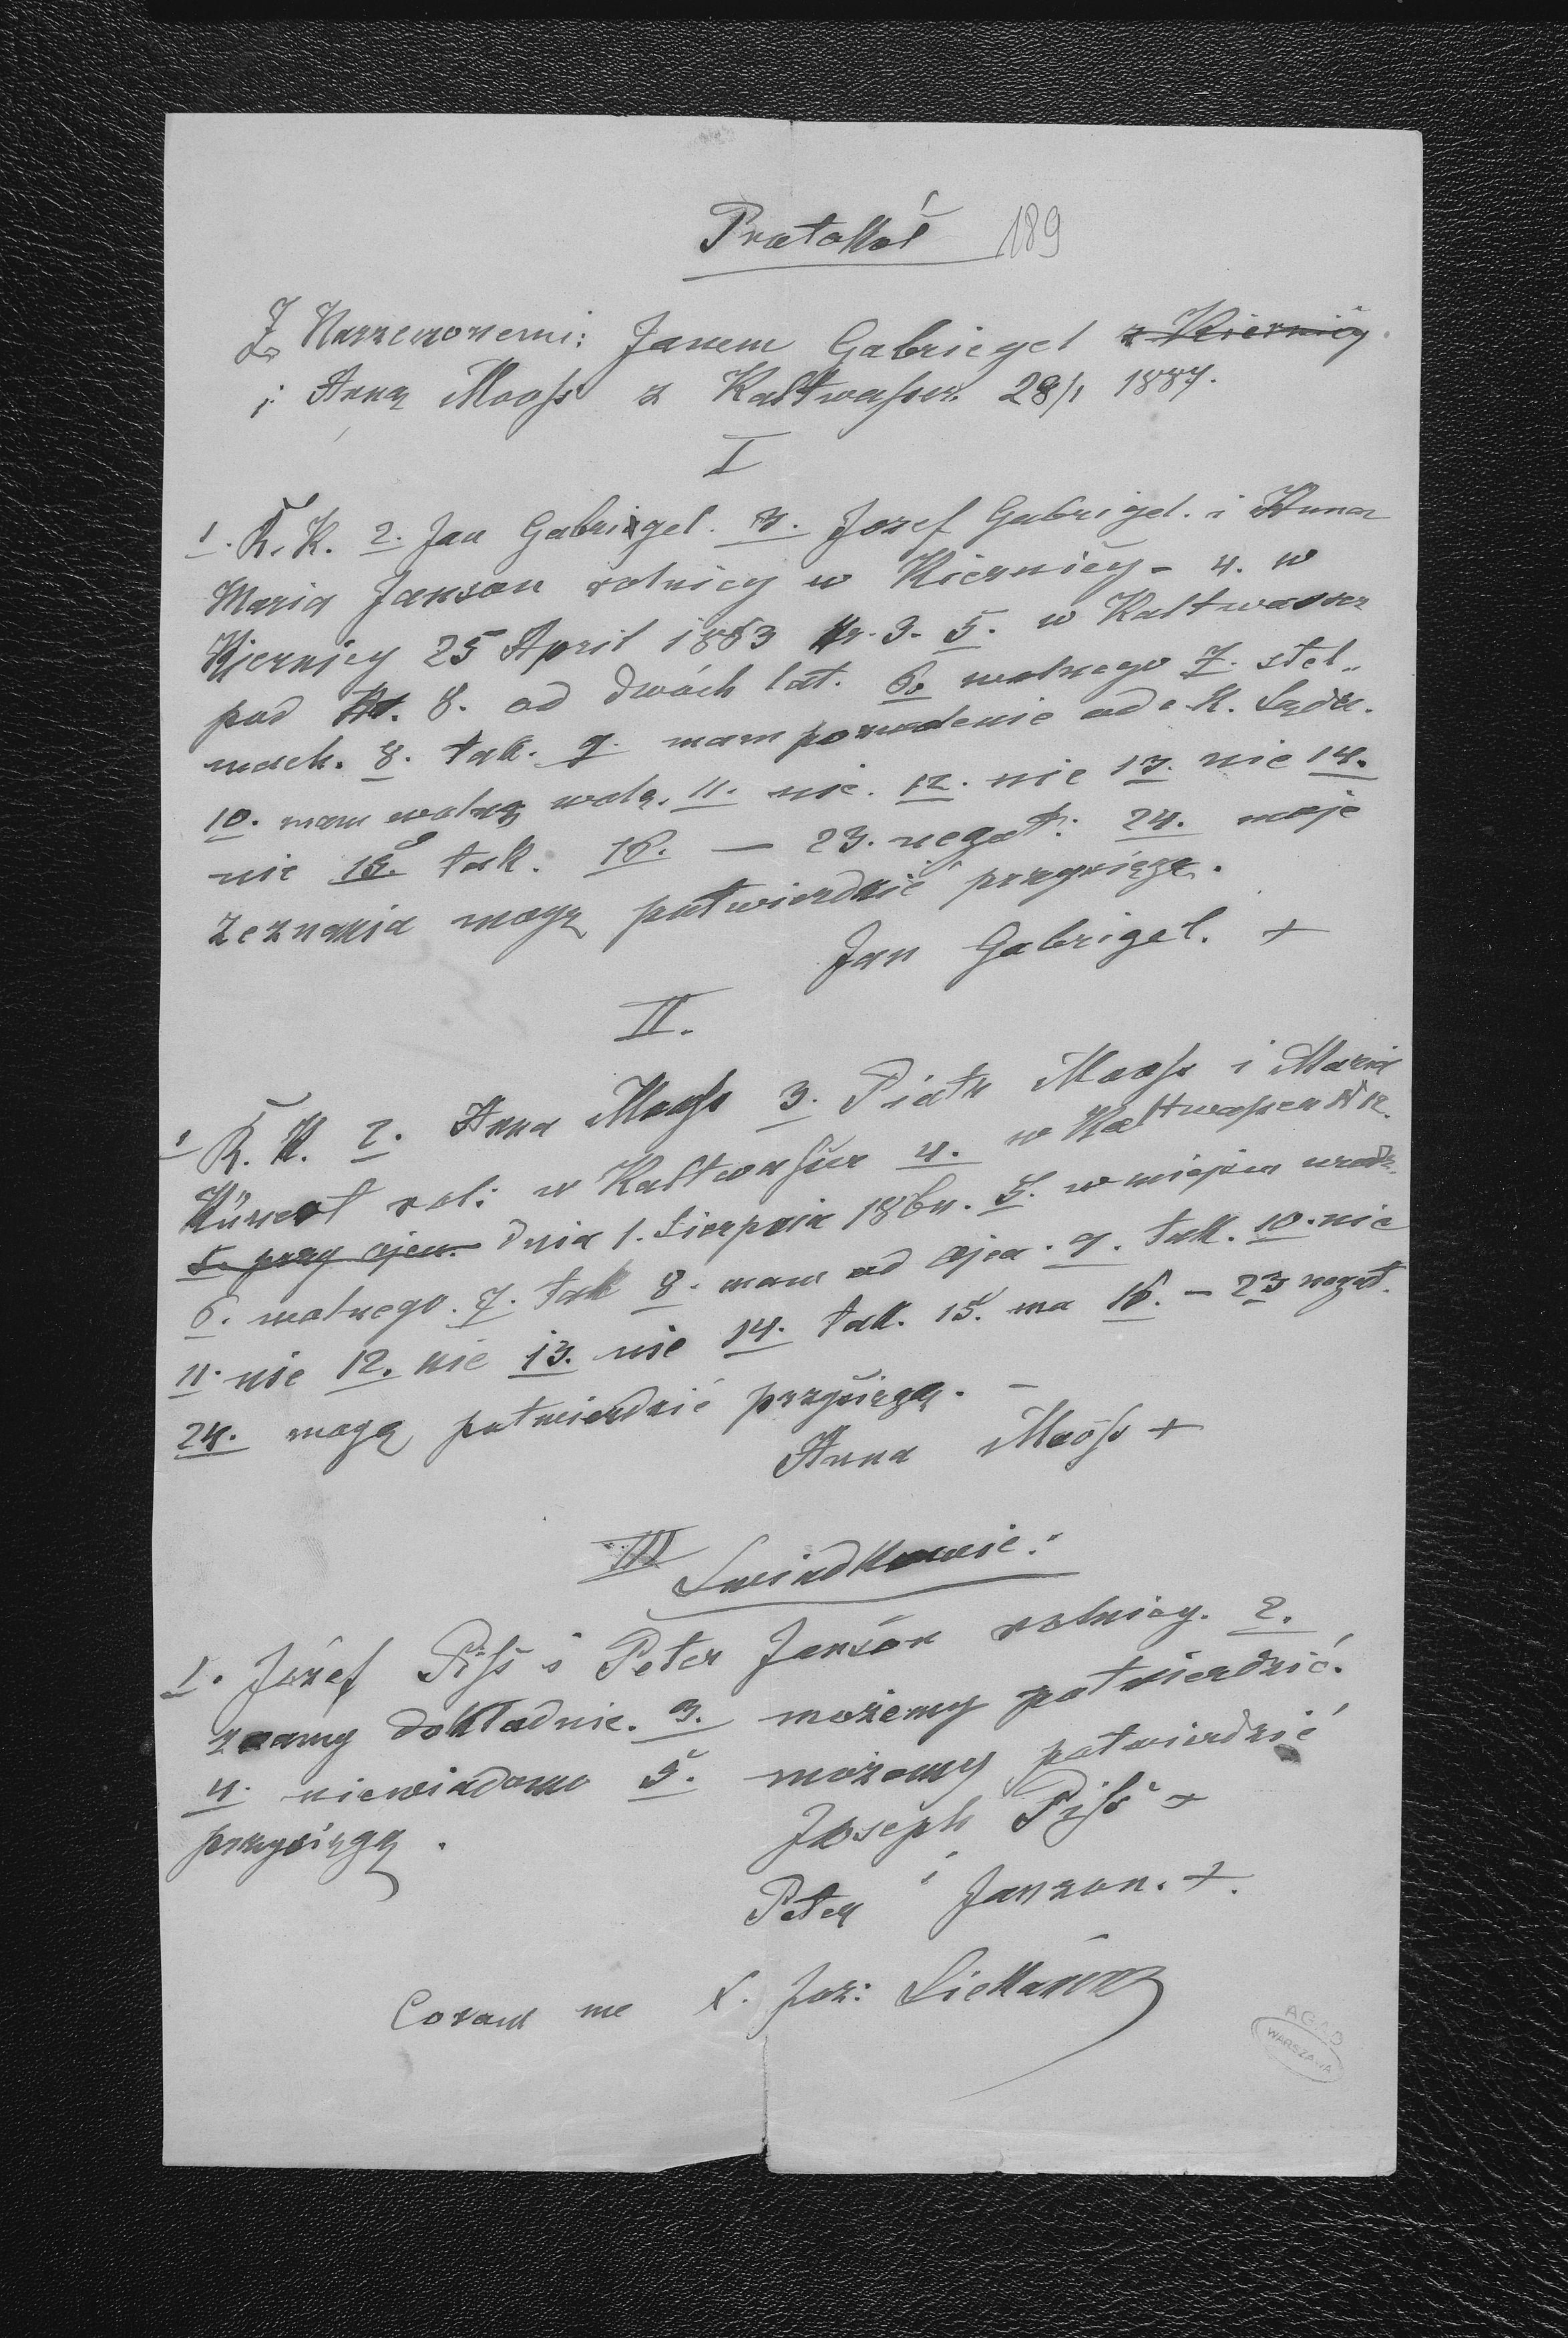 Protokół 189
Z Narzeczonemi: Janem Gabriegel z Kiernicy.
i Anną Mooss z Kaltwasser 28/1 1887.
I
1. R. K. 2. Jan Gabrigel. 3. Jozef Gabrigel. i Anna
Maria Janson rolnicy w Kiernicy - 4. w
Kiernicy 25 April 1863 Nr. 3. 5. w Kaltwasser
pod Nr. 8. od dwóch lat. 6. wolnego 7. stel„
mach. 8. tak. 9. mam pozwolenie od c. K. Sądu.
10. mam wolną wolę. 11. nie. 12. nie 13. nie 14.
nie 15. tak. 16. — 23. negat: 24. moje
zeznania mogę potwierdzić przysięgą.
Jan Gabrigel. +
II.
1 R. K. 2. Anna Mooss 3. Piotr Mooss i Maria
rol: w Kaltwasser 4. w Kaltwasser Nr
5. przy ojcu. dnia 1. Sierpnia 1864. 5. w miejscu urodz.
6. wolnego. 7. tak 8. mam od ojca. 9. tak. 10. nie
11. nie 12. nie 13. nie 14. tak. 15. ma 16. - 23 negat.
24. mogę potwierdzić przysięgą. -
Anna Mooss +
III Swiadkowie:
1. Józef Piss i Peter Janson rolnicy. 2.
znamy dokładnie. 3. możemy potwierdzić.
4. niewiadomo 5. możemy potwierdzić
przysięgą.
Joseph Piss +
i
Peter Janzon. +.
Coram me X. Joz:
AGAD
WARSZAWA